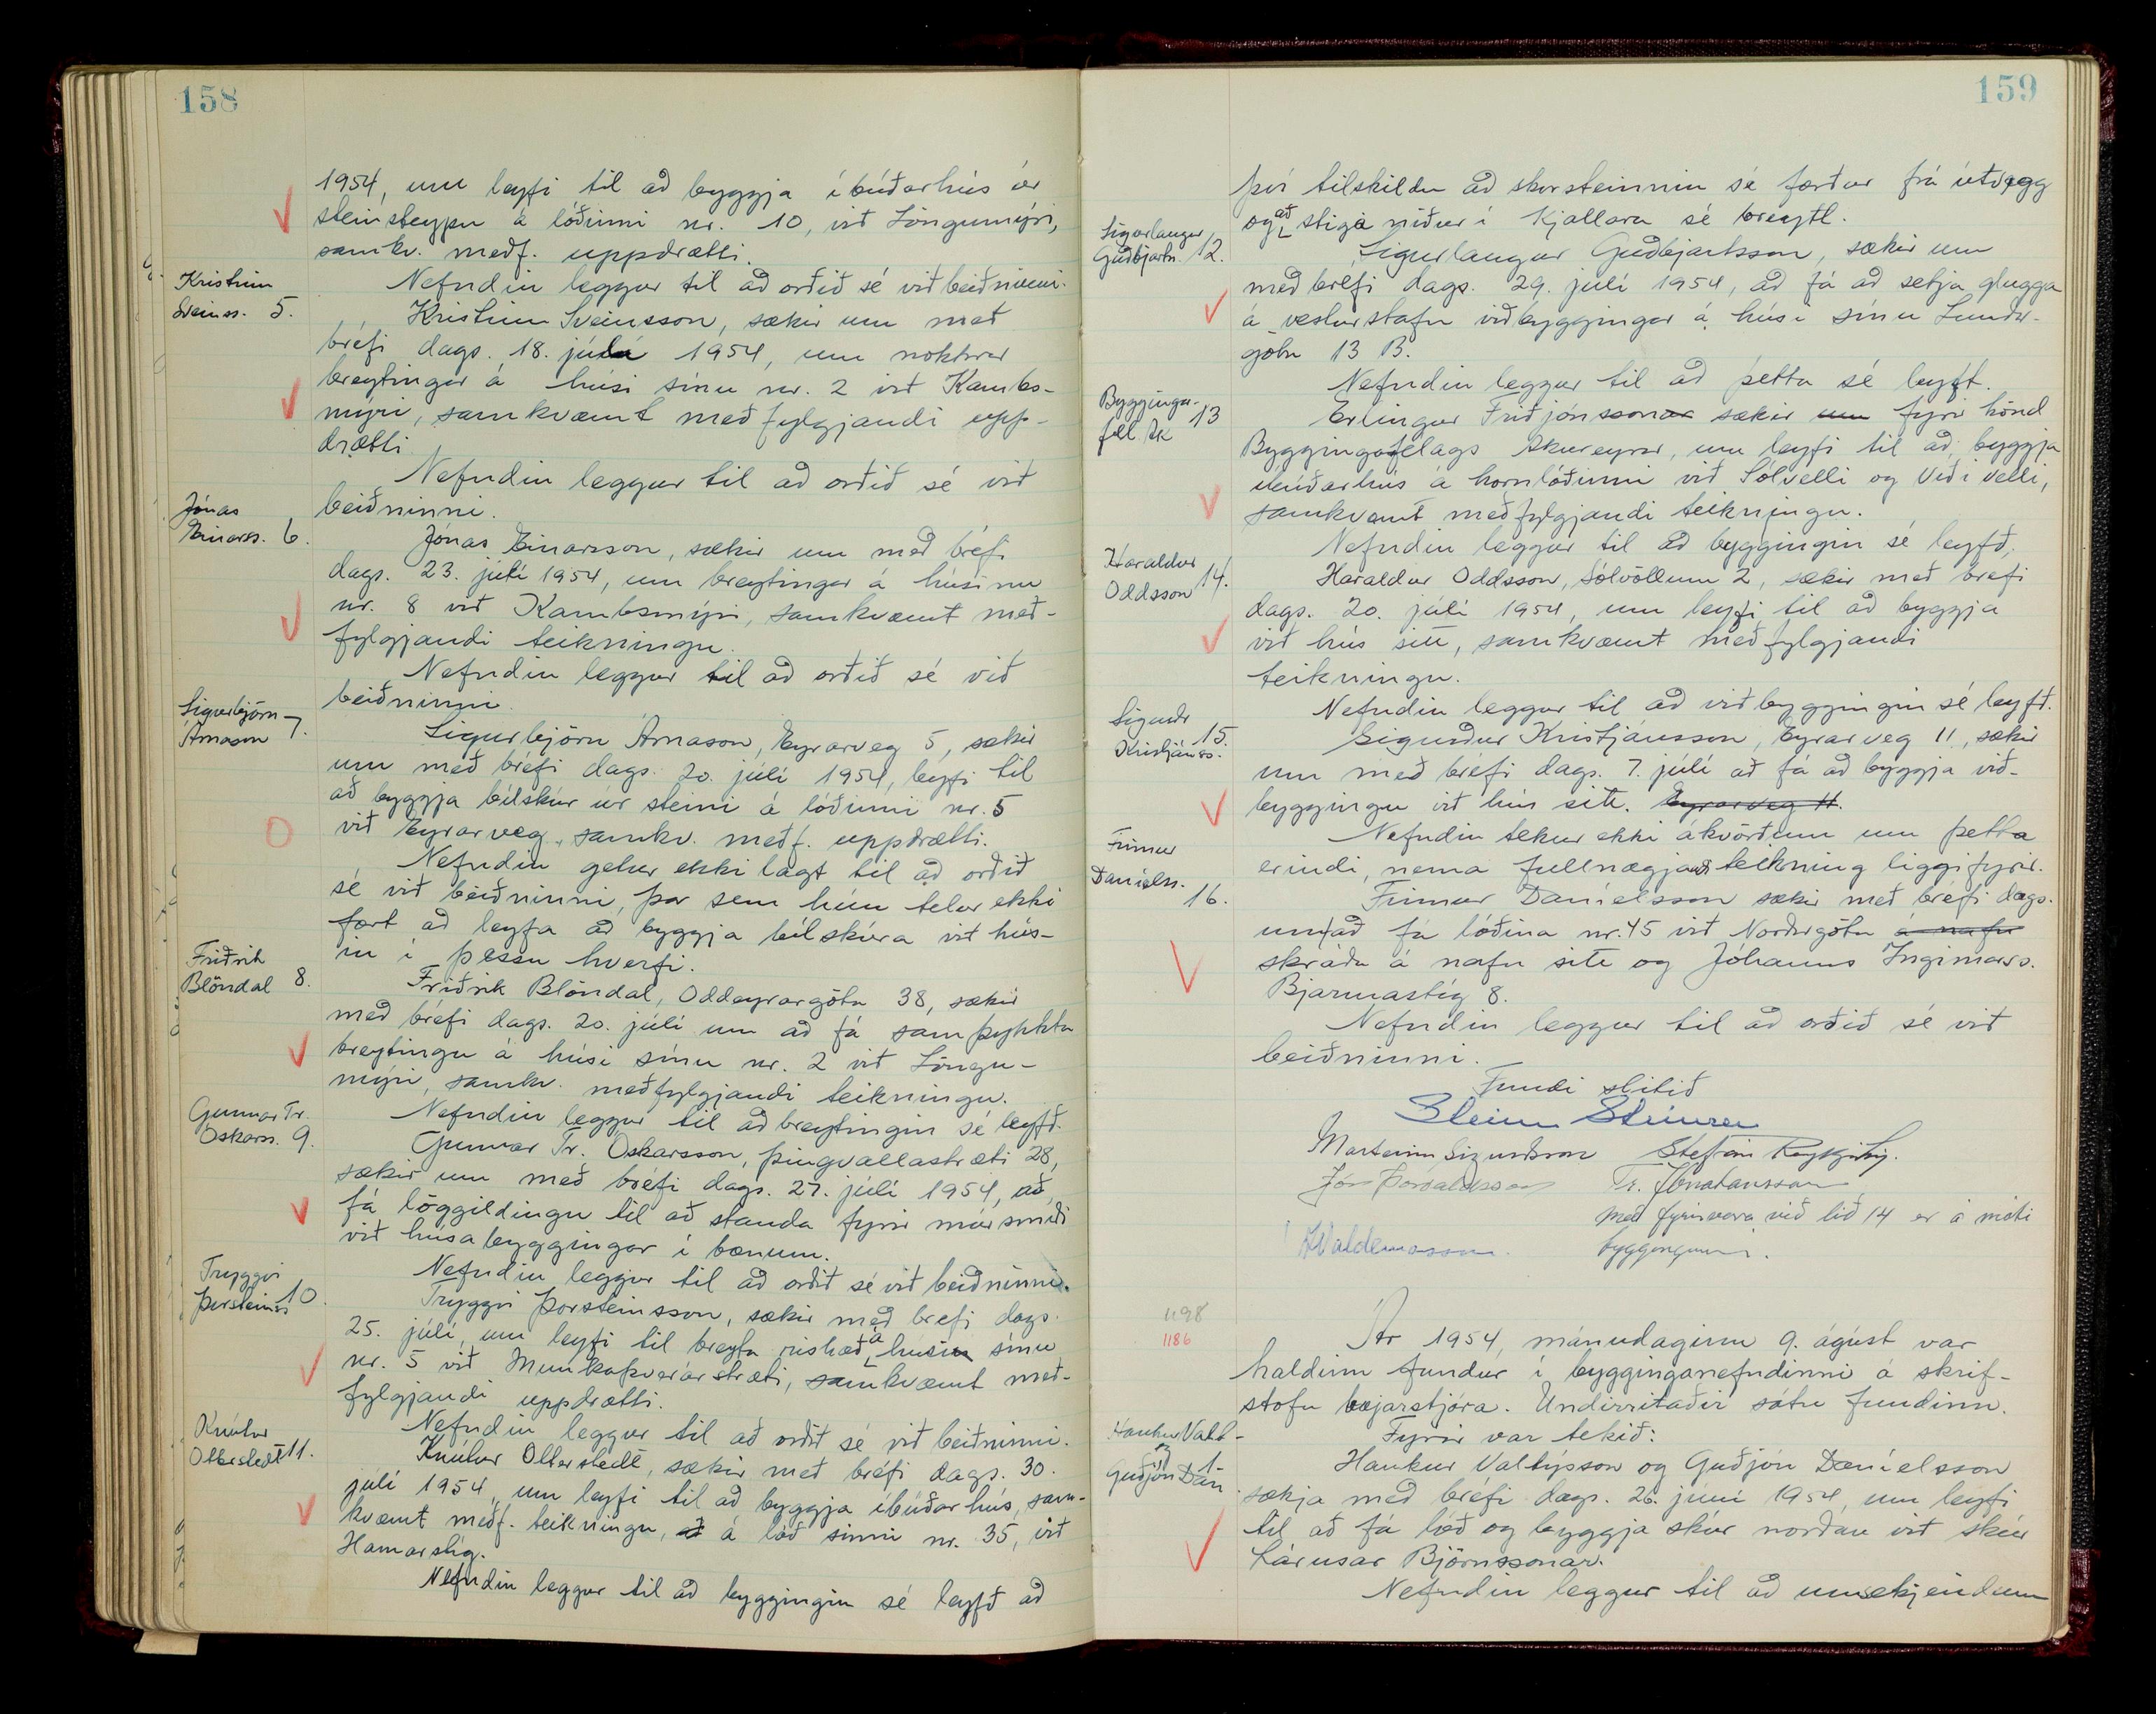 158
1954, um leyfi til að byggja íbúðarhús úr
steinsteypu á lóðinni nr. 10, við Löngumýri,
samkv. meðf. uppdrætti.
Nefndin leggur til að orðið sé við beiðninni.
Kristinn
Sveinss. 5.
Kristinn Sveinsson, sækir um með
bréfi dags. 18. júlí 1954, um nokkrar
breytingar á húsi sínu nr. 2 við Kambs-
mýri, samkvæmt meðfylgjandi upp-
drætti.
Nefndin leggur til að orðið sé við
beiðninni.
Jónas
Einarss. 6.
Jónas Einarsson, sækir um með bréfi
dags. 23. júlí 1954, um breytingar á húsinu
nr. 8 við Kambsmýri, samkvæmt með-
fylgjandi teikningu.
Nefndin leggur til að orðið sé við
beiðninni.
Sigurbjörn
Árnason 7.
Sigurbjörn Árnason, Eyrarveg 5, sækir
um með bréfi dags. 20. júlí 1954, leyfi til
að byggja bílskúr úr steini á lóðinni nr. 5
við Eyrarveg, samkv. meðf. uppdrætti.
Nefndin getur ekki lagt til að orðið
sé við beiðninni, þar sem hún telur ekki
fært að leyfa að byggja bílskúra við hús-
in í þessu hverfi.
Friðrik
Blöndal 8.
Friðrik Blöndal, Oddeyrargötu 38, sækir
með bréfi dags. 20. júlí um að fá samþykkta
breytingu á húsi sínu nr. 2 við Löngu-
mýri, samkv. meðfylgjandi teikningu.
Nefndin leggur til að breytingin sé leyfð.
Gunnar Tr.
Óskarss. 9.
Gunnar Tr. Óskarsson, Þingvallastræti 28,
sækir um með bréfi dags. 27. júlí 1954, að
fá löggildingu til að standa fyrir múrsmíði
við húsabyggingar í bænum.
Nefndin leggur til að orðið sé við beiðninni.
Tryggvi
Þorsteinss. 10.
Tryggvi Þorsteinsson, sækir með bréfi dags.
25. júlí, um leyfi til breyta rishæð á húsin sínu
nr. 5 við Munkaþverárstræti, samkvæmt með-
fylgjandi uppdrætti.
Nefndin leggur til að orðið sé við beiðninni.
Knútur
Otterstedt 11.
Knútur Otterstedt, sækir með bréfi dags. 30.
júlí 1954, um leyfi til að byggja íbúðarhús, sam-
kvæmt meðf. teikningu, á lóð sinni nr. 35, við
Hamarstíg.
Nefndin leggur til að byggingin sé leyfð að
159
því tilskildu að skorsteinninn sé færður frá útvegg
og að stiga niður í kjallara sé breytt.
Sigurlaugur
Guðbjartss. 12.
Sigurlaugur Guðbjartsson, sækir um
með bréfi dags. 29. júlí 1954, að fá að setja glugga
á vesturstafn viðbyggingar á húsi sínu Lundar-
götu 13 B.
Nefndin leggur til að þetta sé leyft.
Bygginga-
fél. Ak 13
Erlingur Friðjónssonar sækir um fyrir hönd
Byggingafélags Akureyrar, um leyfi til að byggja
íbúðarhús á hornlóðinni við Sólvelli og Víðivelli,
samkvæmt meðfylgjandi teikningu.
Nefndin leggur til að byggingin sé leyfð.
Haraldur
Oddsson 14.
Haraldur Oddsson, Sólvöllum 2, sækir með bréfi
dags. 20. júlí 1954, um leyfi til að byggja
við hús sitt, samkvæmt meðfylgjandi
teikningu.
Nefndin leggur til að viðbyggingin sé leyfð.
Sigurðr
Kristjánss. 15.
Sigurður Kristjánsson, Eyrarveg 11, sækir
um með bréfi dags. 7. júlí að fá að byggja við-
byggingu við hús sitt. Eyrarveg 11.
Nefndin tekur ekki ákvörðun um þetta
erindi, nema fullnægjandi teikning liggi fyrir.
Finnur
Daníelss.
16.
Finnur Daníelsson sækir með bréfi dags.
um að fá lóðina nr. 45 við Norðurgötu á nafn
skráða á nafn sitt og Jóhanns Ingimarss.
Bjarmastíg 8.
Nefndin leggur til að orðið sé við
beiðninni.
Fundi slitið
Steinn Steinsen
Marteinn Sigurðsson Stefán Reykjalín.
Jón Þorvaldsson Tr. Jónatansson
með fyrirvara við lið 14 er á móti
byggingunni.
1198
1186
Ár 1954, mánudaginn 9. ágúst var
haldinn fundur í bygginganefndinni á skrif-
stofu bæjarstjóra. Undirritaðir sátu fundinn.
Fyrir var tekið:
Haukur Valt-
og 1.
Guðjón Dan.
Haukur Valtýsson og Guðjón Daníelsson
sækja með bréfi dags. 26. júní 1954, um leyfi
til að fá lóð og byggja skúr norðan við skúr
Lárusar Björnssonar.
Nefndin leggur til að umsækjendum